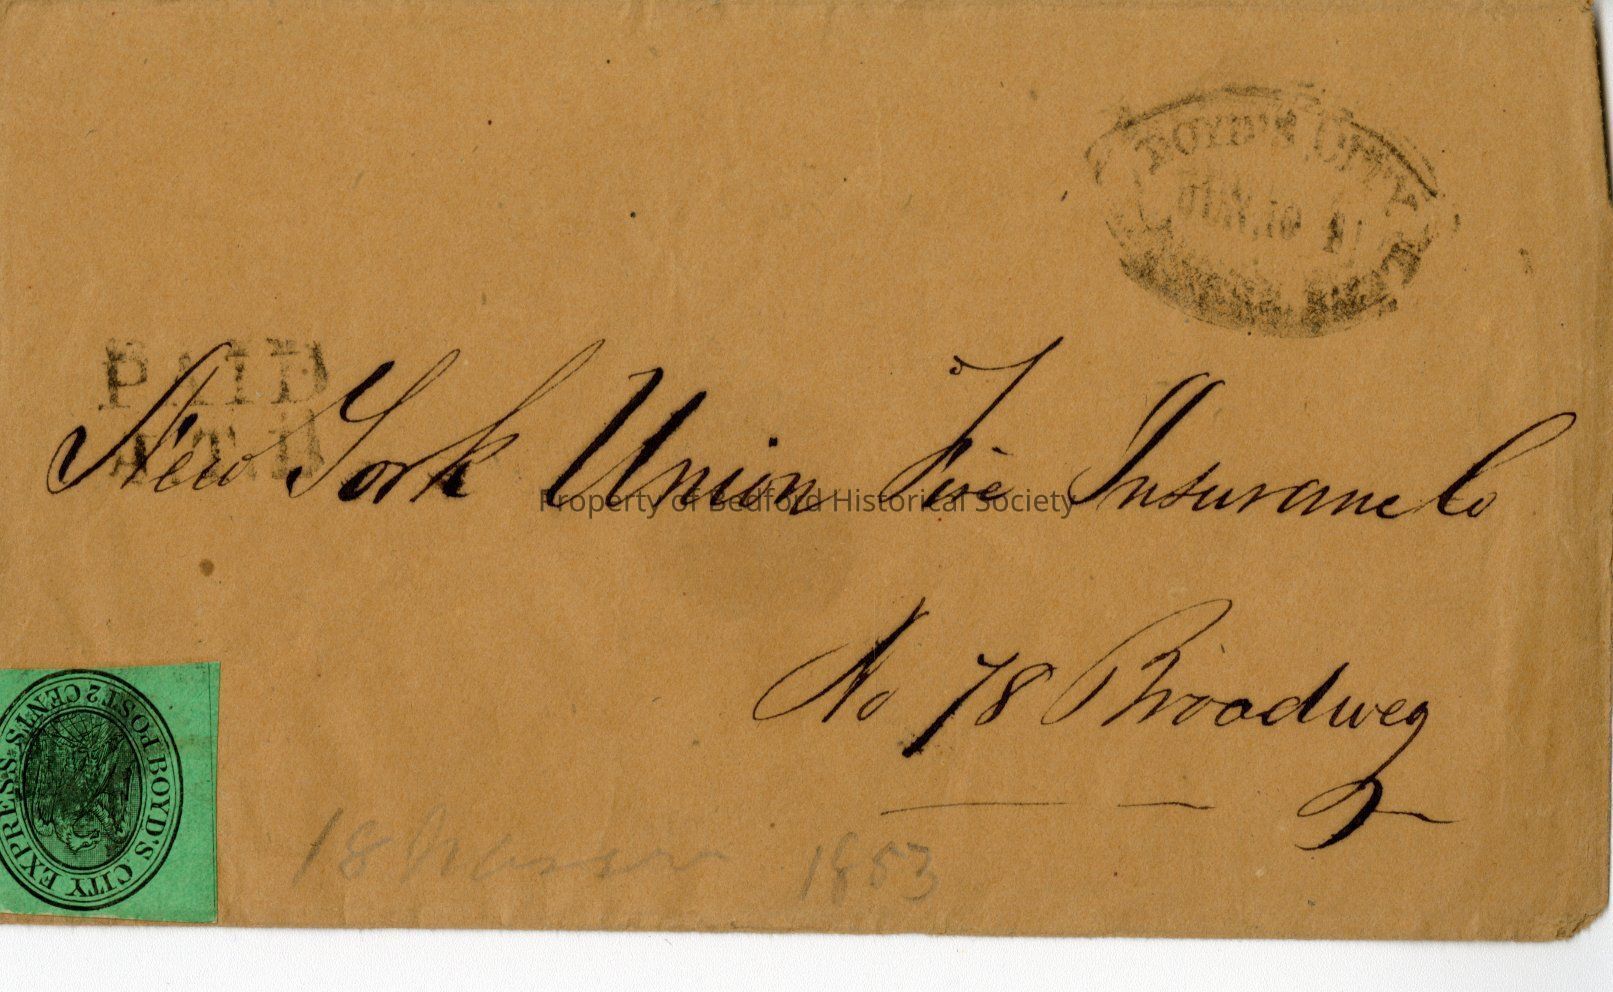 BOYD'S CITY E
PAID
New York Union Fire Insurance Co
Property of Bedford Historical Society
No 78 Broadway
BOYD'S CITY EXPRESS POST 2 CENTS
18 1853